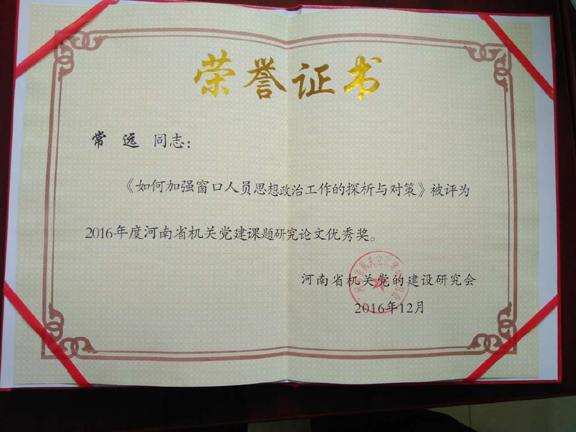 荣誉证书
常 远 同志：
《如何加强窗口人员思想政治工作的探析与对策》被评为
2016年度河南省机关党建课题研究论文优秀奖。
河南省机关党的建设研究会
2016年12月